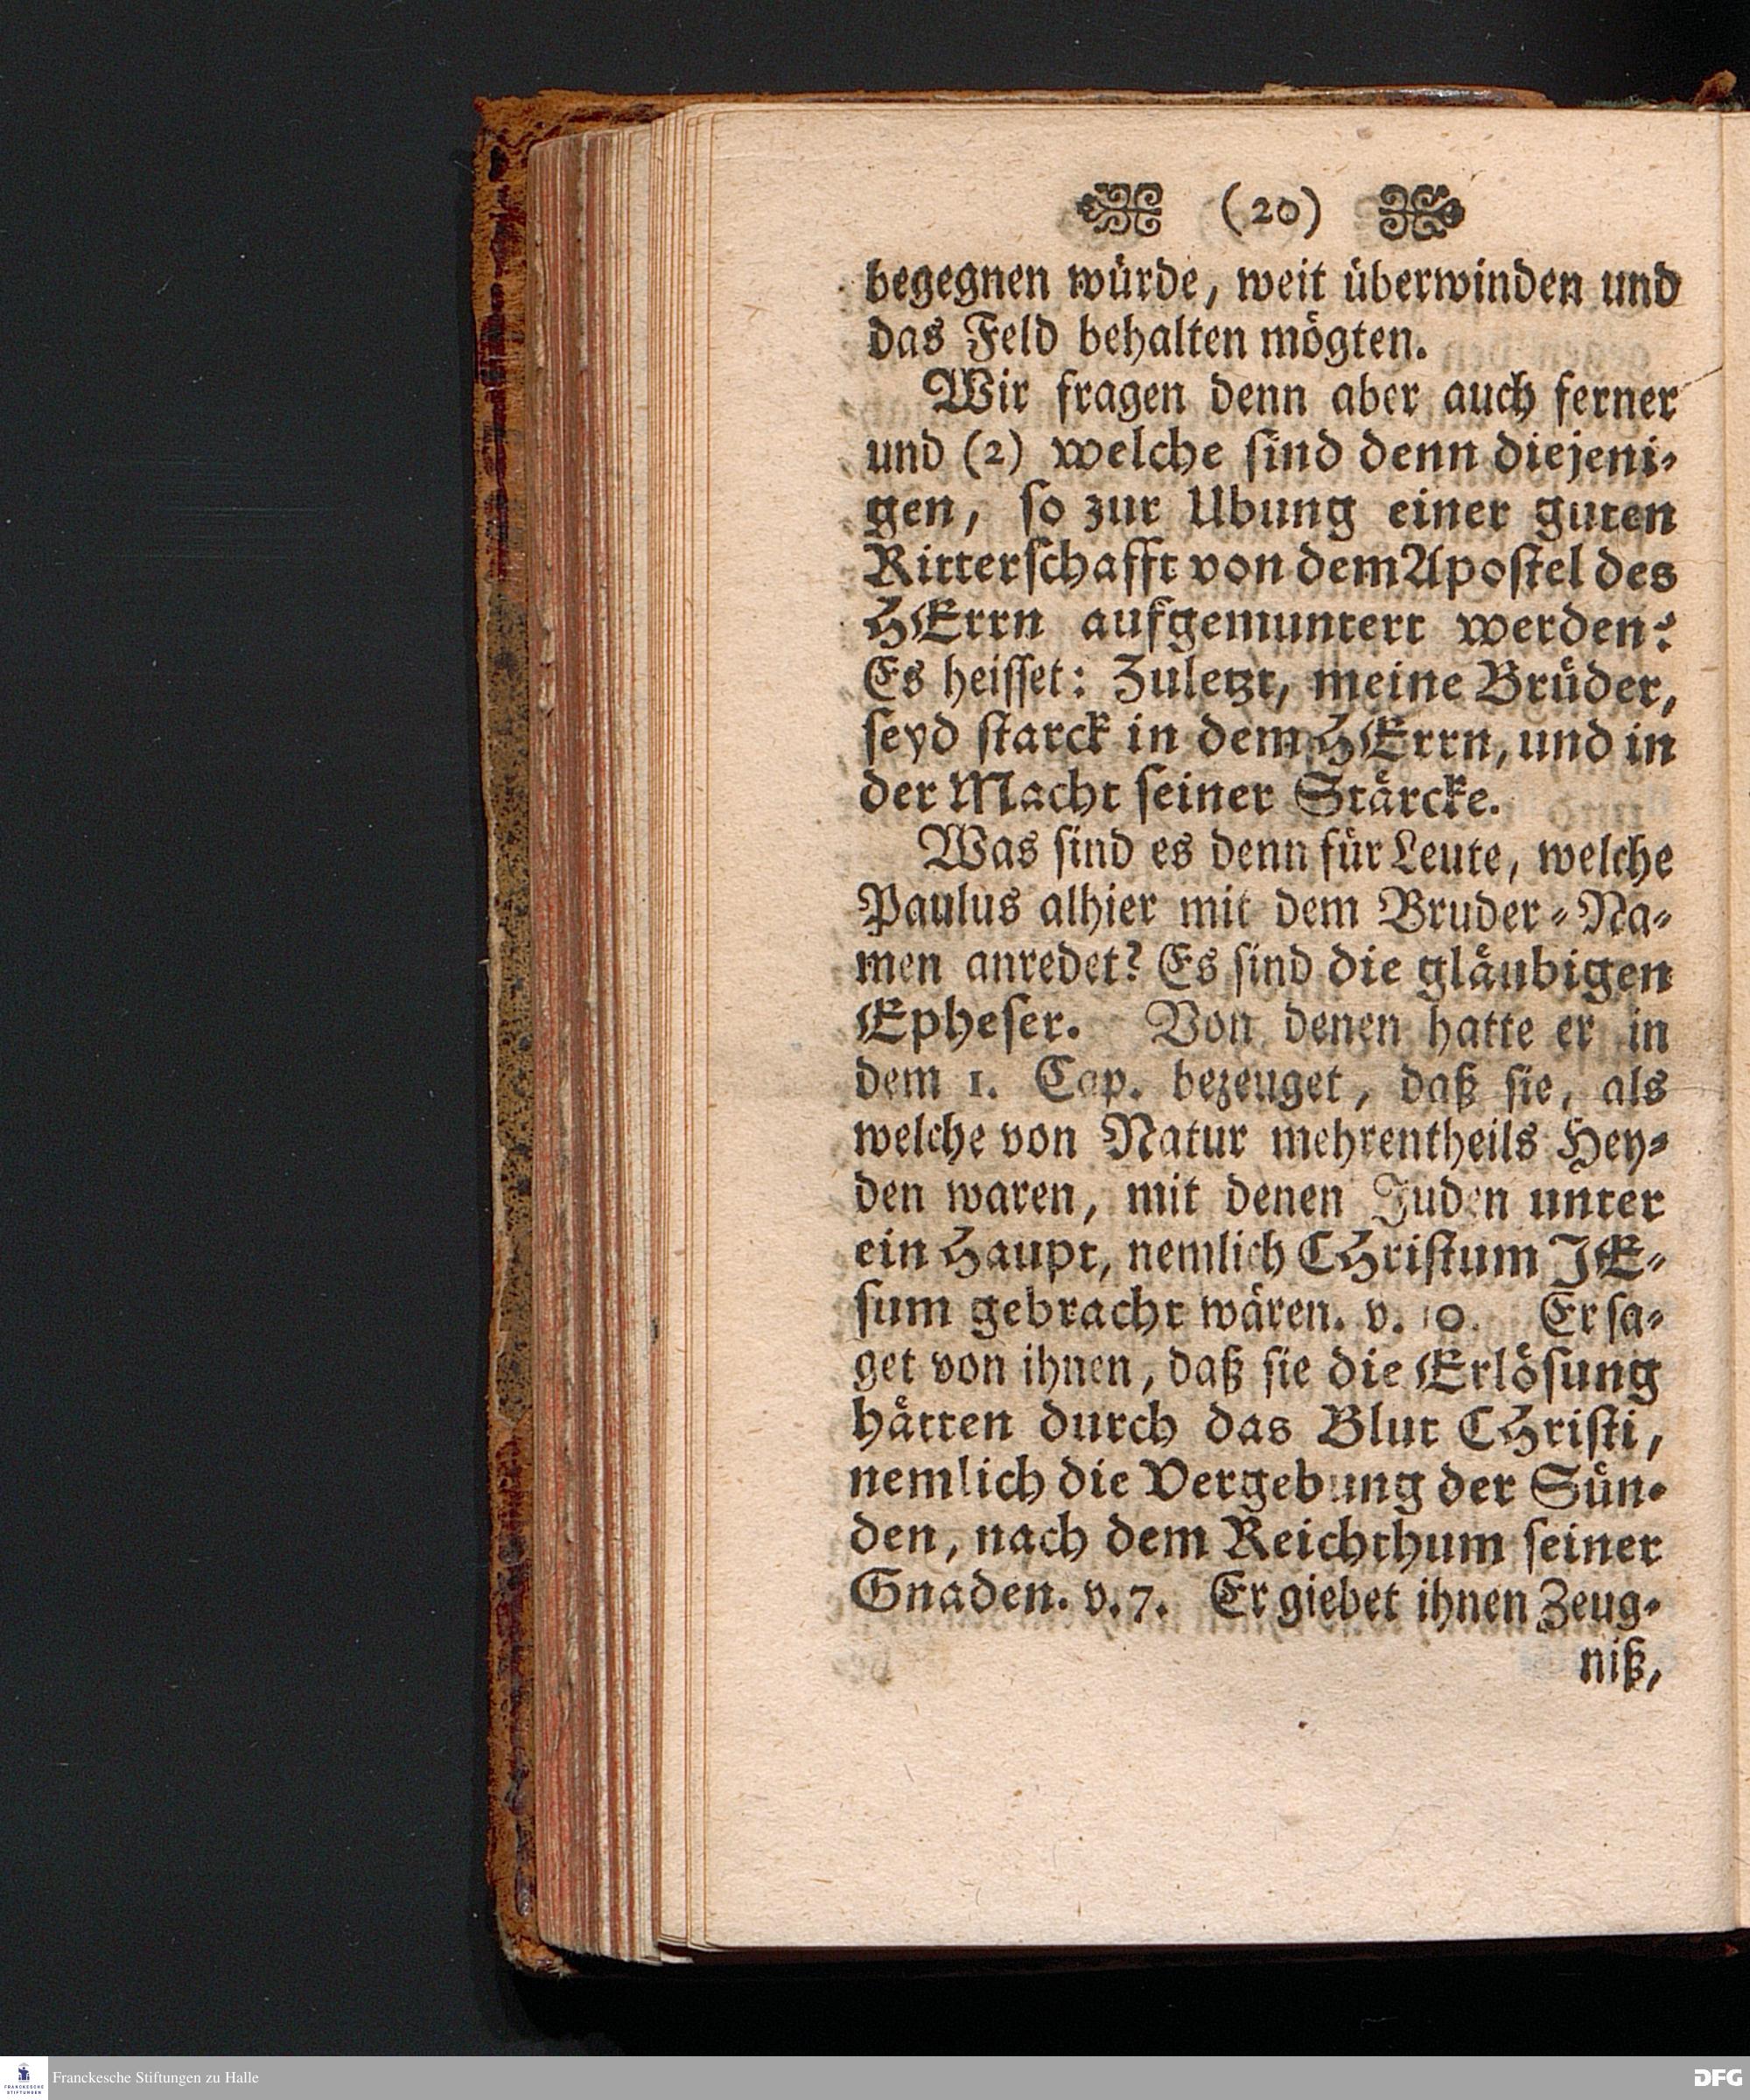 (20)
begegnen würde, weit überwinden und
das Feld behalten mögten.
Wir fragen denn aber auch ferner
und (2) welche sind denn diejeni-
gen, so zur Ubung einer guten
Ritterschafft von dem Apostel des
HErrn aufgemuntert werden?
Es heisset: Zuletzt, meine Brüder,
seyd starck in dem HErrn, und in
der Macht seiner Stärcke.
Was sind es denn für Leute, welche
Paulus alhier mit dem Bruder-Na-
men anredet? Es sind die gläubigen
Epheser. Von denen hatte er in
dem 1. Cap. bezeuget, daß sie, als
welche von Natur mehrentheils Hey-
den waren, mit denen Juden unter
ein Haupt, nemlich CHristum JE-
sum gebracht wären. v. 10. Er sa-
get von ihnen, daß sie die Erlösung
hätten durch das Blut CHristi,
nemlich die Vergebung der Sün-
den, nach dem Reichthum seiner
Gnaden. v. 7. Er giebet ihnen Zeug-
niß,
FRANCKESCHE
STIFTUNGEN
Franckesche Stiftungen zu Halle
DFG